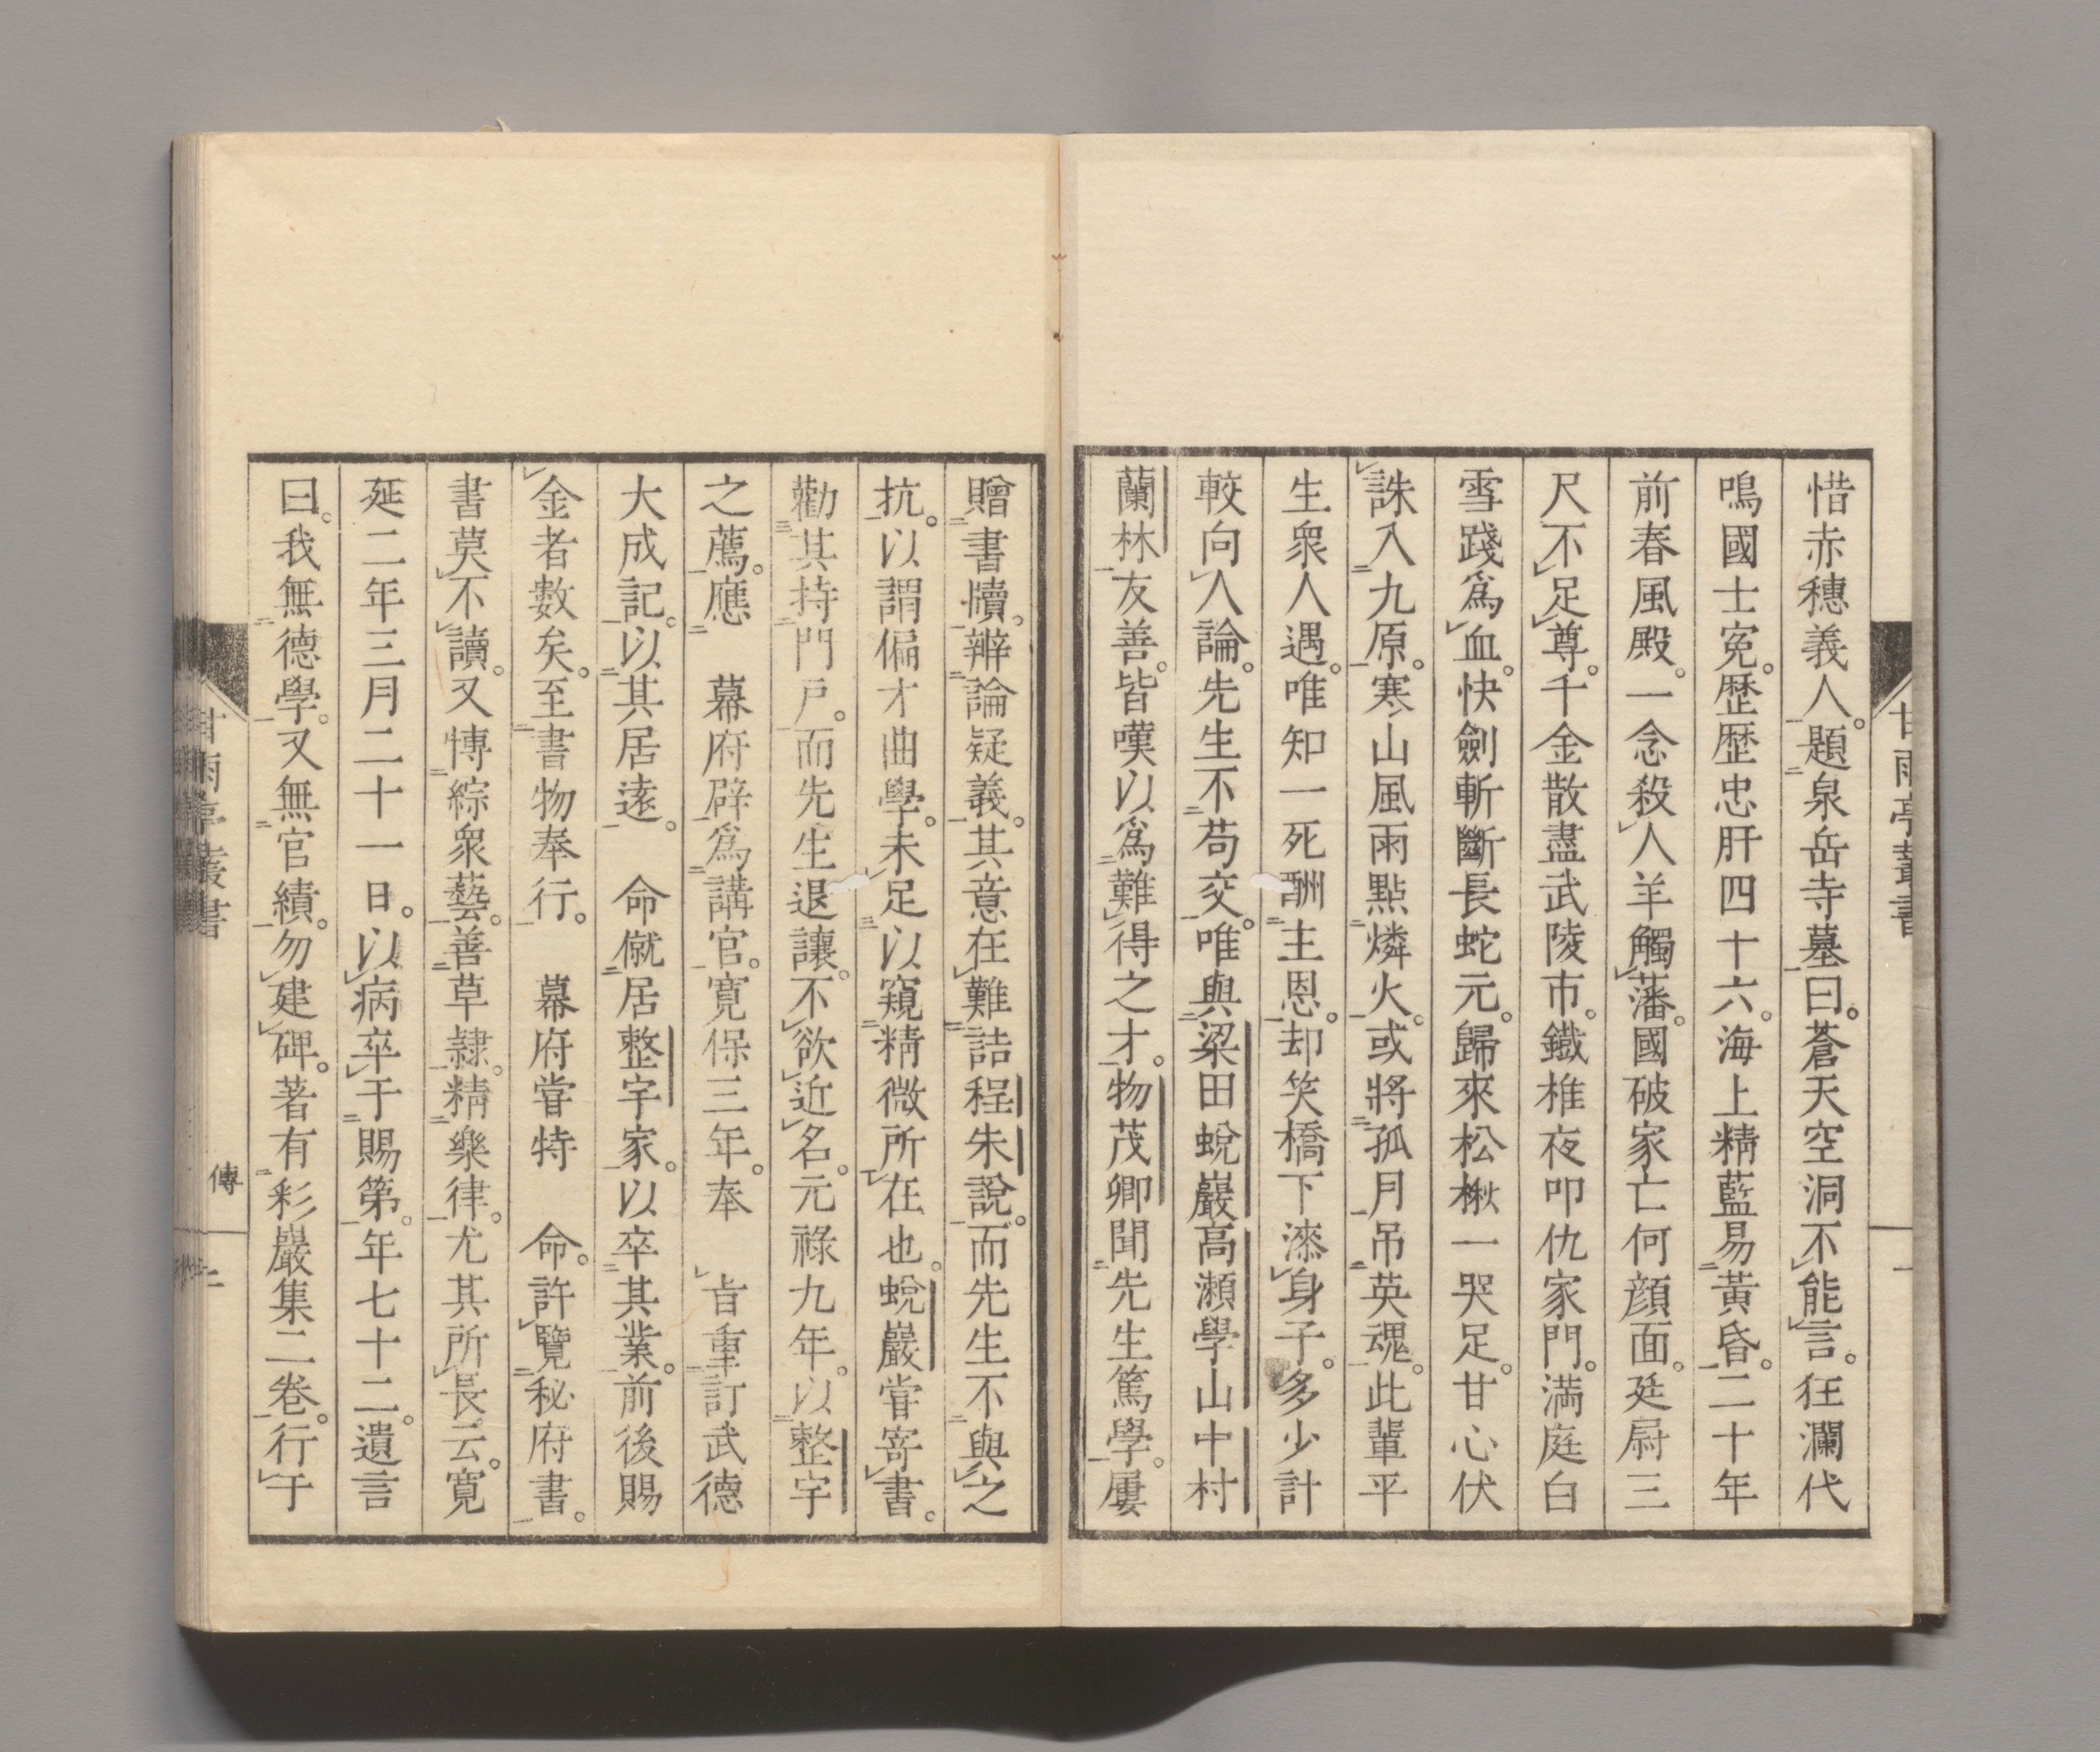 惜赤穗義人。題泉岳寺墓曰。蒼天空洞不能言。狂瀾代
鳴國士寃。歷歷忠肝四十六。海上精藍易黃昏。二十年
前春風殿。一念殺人羊觸藩。國破家亡何顔面。廷尉三
尺不足尊。千金散盡武陵市。鐵椎夜叩仇家門。満庭白
雪踐爲血。快劍斬斷長蛇元。歸來松楸一哭足。甘心伏
誅入九原。寒山風雨點燐火。或將孤月吊英魂。此輩平
生衆人遇。唯知一死酬主恩。却笑橋下漆身子。多少計
較向人論。先生不苟交。唯與梁田蛻巖高瀬學山中村
蘭林友善。皆嘆以爲難得之才。物茂卿聞先生篤學。屢
贈書牘。辯論疑義。其意在難詰程朱說。而先生不與之
抗。以謂偏才曲學。未足以窺精微所在也。蛻巖嘗寄書。
勸其持門戸。而先生退讓。不欲近名。元祿九年。以整宇
之薦。應　幕府辟爲講官。寬保三年。奉　旨重訂武德
大成記。以其居遠。　命僦居整宇家。以卒其業。前後賜
金者數矣。至書物奉行。　幕府嘗特　命。許覽秘府書。
書莫不讀。又博綜衆藝。善草隷。精樂律。尤其所長云。寬
延二年三月二十一日。以病卒于賜第。年七十二。遺言
曰。我無德學。又無官績。勿建碑。著有彩巖集二卷。行于
甘雨亭叢書
傳
二